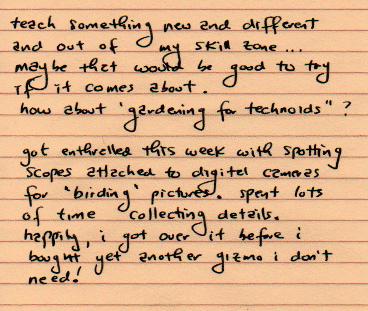 teach something new and different
and out of my skill zone...
maybe that would be good to try
if it comes about.
how about "gardening for technoids"?
got enthralled this week with spotting
scopes attached to digital cameras
for "birding" pictures. spent lots
of time collecting details.
happily, i got over it before i
bought yet another gizmo i don't
need!